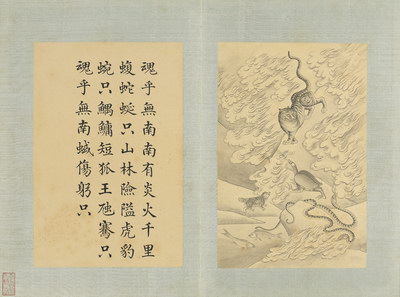 魂乎無南南有炎火千里
蝮蛇蜒只山林險隘虎豹
蜿只鰅鱅短狐王虺騫只
魂乎無南蜮傷躬只